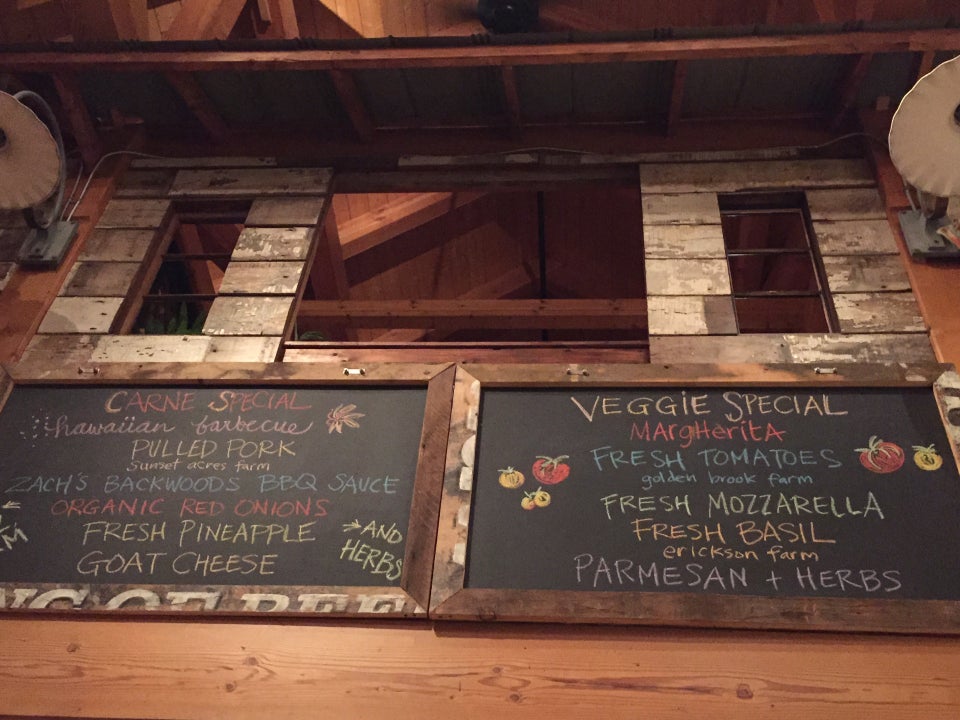 CARNE SPECIAL
hawaiian barbecue
PULLED PORK
Sunset acres farm
ZACH'S BACKWOODS BBQ SAUCE
ORGANIC RED ONIONS
FRESH PINEAPPLE
GOAT CHEESE
AND
HERBS
VEGGIE SPECIAL
MARGHERITA
FRESH TOMATOES
golden brook farm
FRESH MOZZARELLA
FRESH BASIL
erickson farm
PARMESAN + HERBS